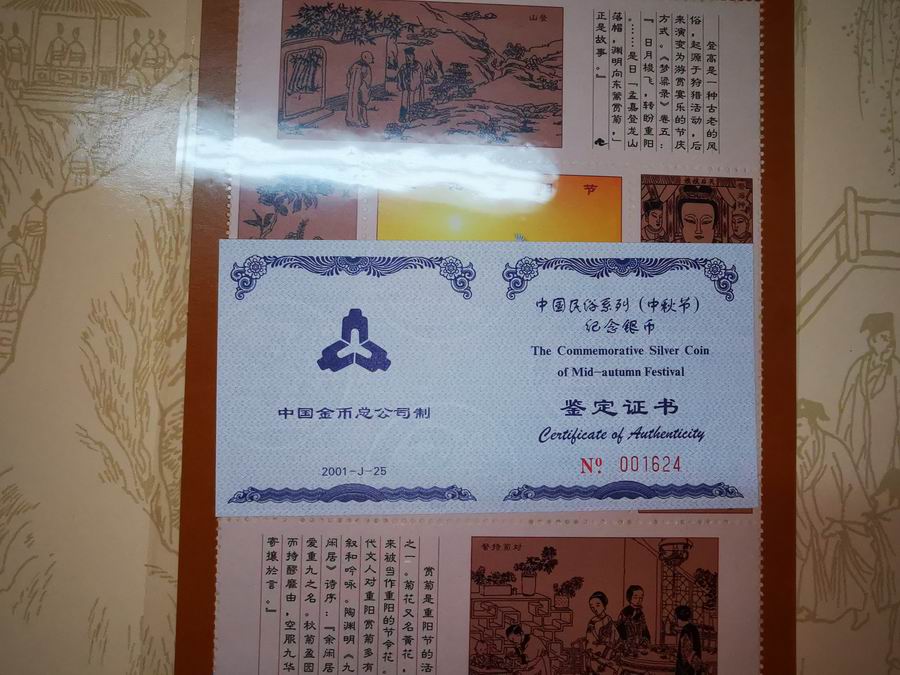 登山
登高是一种古老的风
俗，起源于狩猎活动，后
来演变为游赏宴乐的节庆
方式。《梦粱录》卷五：
『日月梭飞，转盼重阳
……是日『孟嘉登龙山
落帽，渊明向东篱赏菊』
正是故事。』
节
中国金币总公司制
2001-J-25
中国民俗系列（中秋节）
纪念银币
The Commemorative Silver Coin
of Mid-autumn Festival
鉴定证书
Certificate of Authenticity
Nº 001624
赏菊是重阳节的活
之一。菊花又名黄花，
来被当作重阳的节令花
代文人对重阳赏菊多有
叙和吟咏。陶渊明《九
闲居》诗序：『余闲居
爱重九之名。秋菊盈园
而持醪靡由，空服九华
寄懷於言。』
对菊持螯